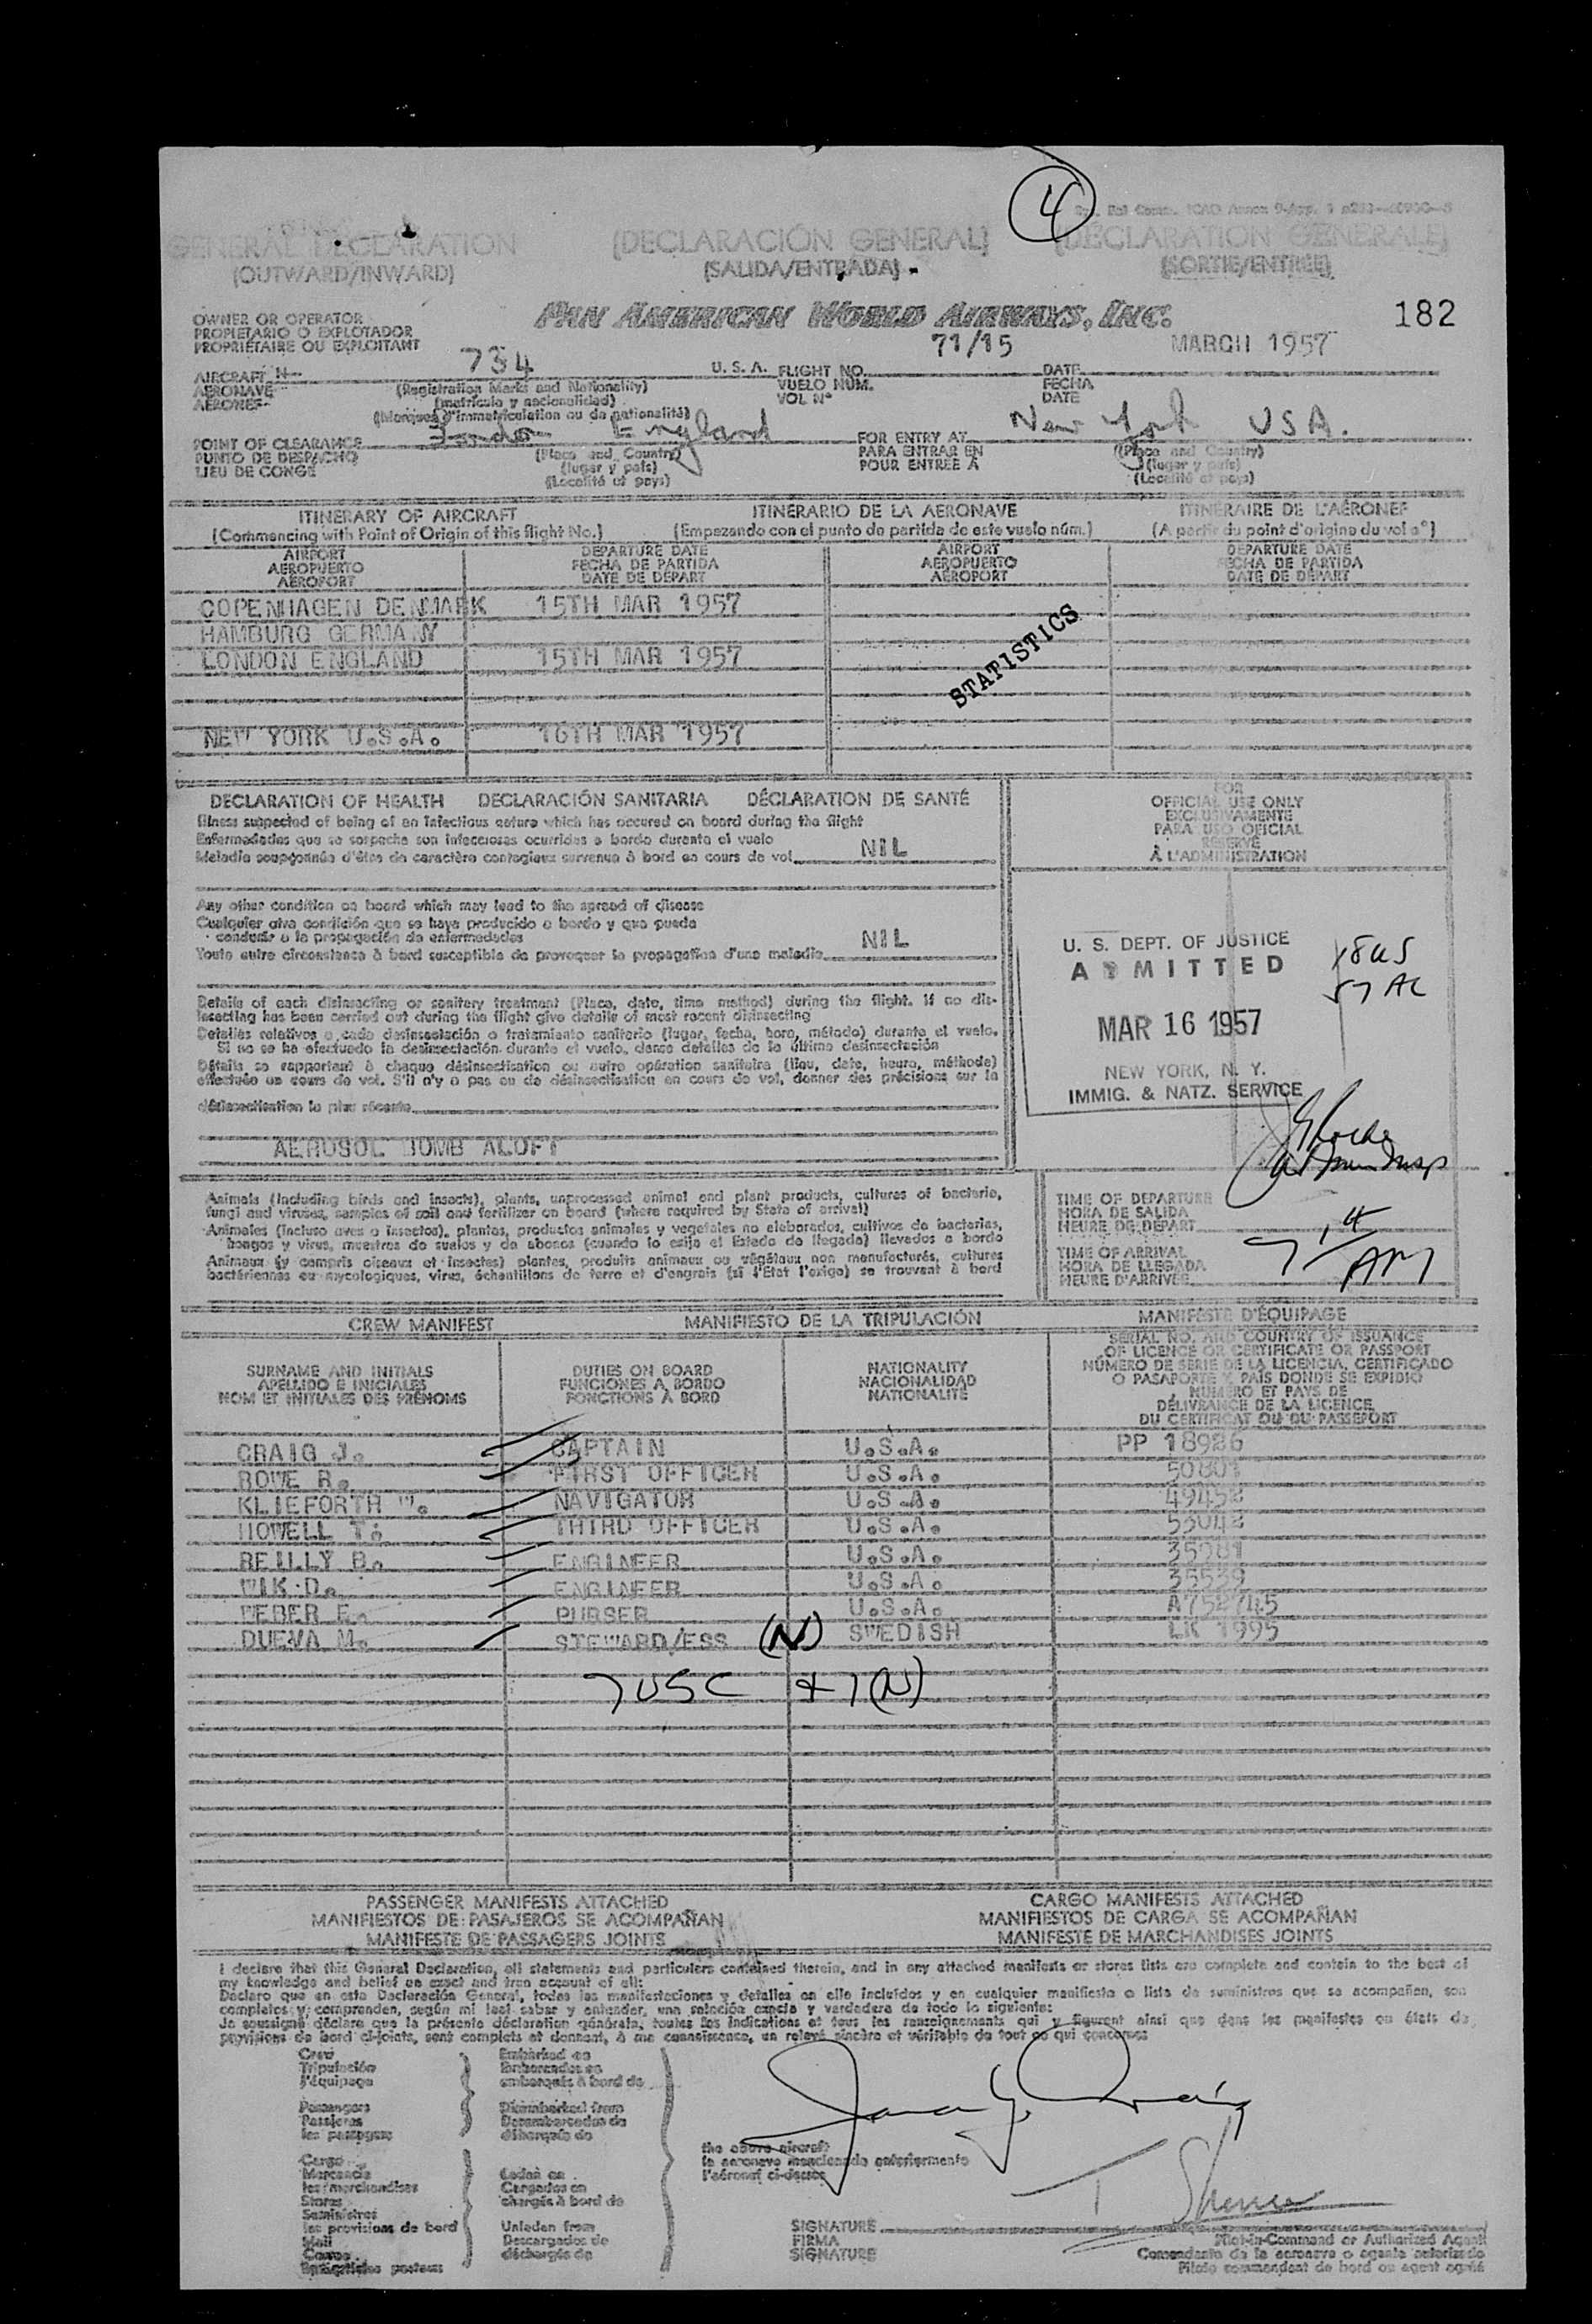 4
GENERAL DECLARATION [DECLARACIÓN GENERAL] [DÉCLARATION GÉNÉRALE]
(OUTWARD/INWARD) (SALIDA/ENTRADA) (SORTIE/ENTRÉE)
OWNER OR OPERATOR
PROPIETARIO O EXPLOTADOR
PROPRIÉTAIRE OU EXPLOITANT
PAN AMERICAN WORLD AIRWAYS, INC.
182
AIRCRAFT N- 734 U. S. A. FLIGHT NO. 71/15 DATE MARCH 1957
AERONAVE (Registration Marks and Nationality) VUELO NÚM. FECHA
AÉRONEF (matrícula y nacionalidad) VOL Nº DATE
(Marques d'immatriculation ou de nationalité)
POINT OF CLEARANCE London England FOR ENTRY AT New York USA.
PUNTO DE DESPACHO (Place and Country) PARA ENTRAR EN (Place and Country)
LIEU DE CONGÉ (lugar y país) POUR ENTRÉE À (lugar y país)
(Localité et pays) (Localité et pays)
ITINERARY OF AIRCRAFT ITINERARIO DE LA AERONAVE ITINÉRAIRE DE L'AÉRONEF
(Commencing with Point of Origin of this flight No.) (Empezando con el punto de partida de este vuelo núm.) (A partir du point d'origine du vol nº)
AIRPORT DEPARTURE DATE AIRPORT DEPARTURE DATE
AEROPUERTO FECHA DE PARTIDA AEROPUERTO FECHA DE PARTIDA
AÉROPORT DATE DE DÉPART AÉROPORT DATE DE DÉPART
COPENHAGEN DENMARK 15TH MAR 1957
HAMBURG GERMANY
LONDON ENGLAND 15TH MAR 1957
STATISTICS
NEW YORK U.S.A. 16TH MAR 1957
DECLARATION OF HEALTH DECLARACIÓN SANITARIA DÉCLARATION DE SANTÉ
Illness suspected of being of an infectious nature which has occured on board during the flight
Enfermedades que se sospecha son infecciosas ocurridas a bordo durante el vuelo
Maladie soupçonnée d'être de caractère contagieux survenue à bord en cours de vol NIL
Any other condition on board which may lead to the spread of disease
Cualquier otra condición que se haya producido a bordo y que pueda
conducir a la propagación de enfermedades
Toute autre circonstance à bord susceptible de provoquer la propagation d'une maladie NIL
Details of each disinsecting or sanitary treatment (Place, date, time method) during the flight. If no dis-
insecting has been carried out during the flight give details of most recent disinsecting
Detalles relativos a cada desinsectación o tratamiento sanitario (lugar, fecha, hora, método) durante el vuelo.
Si no se ha efectuado la desinsectación durante el vuelo, dense detalles de la última desinsectación
Détails se rapportant à chaque désinsectisation ou autre opération sanitaire (lieu, date, heure, méthode)
effectuée au cours de vol. S'il n'y a pas eu de désinsectisation en cours de vol, donner des précisions sur la
désinsectisation la plus récente
AEROSOL BOMB ALOFT
FOR
OFFICIAL USE ONLY
EXCLUSIVAMENTE
PARA USO OFICIAL
RÉSERVÉ
À L'ADMINISTRATION
U. S. DEPT. OF JUSTICE
ADMITTED
MAR 16 1957
NEW YORK, N. Y.
IMMIG. & NATZ. SERVICE
Animals (including birds and insects), plants, unprocessed animal and plant products, cultures of bacteria,
fungi and viruses, samples of soil and fertilizer on board (where required by State of arrival)
Animales (incluso aves o insectos), plantas, productos animales y vegetales no elaborados, cultivos de bacterias,
hongos y virus, muestras de suelos y de abonos (cuando lo exija el Estado de llegada) llevados a bordo
Animaux (y compris oiseaux et insectes) plantes, produits animaux ou végétaux non manufacturés, cultures
bactériennes ou mycologiques, virus, échantillons de terre et d'engrais (si l'État l'exige) se trouvant à bord
TIME OF DEPARTURE
HORA DE SALIDA
HEURE DE DÉPART
TIME OF ARRIVAL
HORA DE LLEGADA
HEURE D'ARRIVÉE
AM
CREW MANIFEST MANIFIESTO DE LA TRIPULACIÓN MANIFESTE D'ÉQUIPAGE
SURNAME AND INITIALS DUTIES ON BOARD NATIONALITY
APELLIDO E INICIALES FUNCIONES A BORDO NACIONALIDAD
NOM ET INITIALES DES PRÉNOMS FONCTIONS À BORD NATIONALITÉ
SERIAL NO. AND COUNTRY OF ISSUANCE
OF LICENCE OR CERTIFICATE OR PASSPORT
NÚMERO DE SERIE DE LA LICENCIA, CERTIFICADO
O PASAPORTE Y PAÍS DONDE SE EXPIDIÓ
NUMÉRO ET PAYS DE
DÉLIVRANCE DE LA LICENCE,
DU CERTIFICAT OU DU PASSEPORT
CRAIG J. CAPTAIN U.S.A. PP 18926
ROWE R. FIRST OFFICER U.S.A.
KLIEFORTH W. NAVIGATOR U.S.A.
HOWELL T. THIRD OFFICER U.S.A.
REILLY B. ENGINEER U.S.A.
WIK D. ENGINEER U.S.A. 35539
WEBER E. PURSER U.S.A.
DUEVA M. STEWARD/ESS (N) SWEDISH LK 1995
7 USC + 1 (N)
PASSENGER MANIFESTS ATTACHED CARGO MANIFESTS ATTACHED
MANIFIESTOS DE PASAJEROS SE ACOMPAÑAN MANIFIESTOS DE CARGA SE ACOMPAÑAN
MANIFESTE DE PASSAGERS JOINTS MANIFESTE DE MARCHANDISES JOINTS
I declare that this General Declaration, all statements and particulars contained therein, and in any attached manifests or stores lists are complete and contain to the best of
my knowledge and belief an exact and true account of all:
Declaro que en esta Declaración General, todas las manifestaciones y detalles en ella incluidos y en cualquier manifiesto o lista de suministros que se acompañen, son
completos y comprenden, según mi leal saber y entender, una relación exacta y verdadera de todo lo siguiente:
Je soussigné déclare que la présente déclaration générale, toutes les indications et tous les renseignements qui y figurent ainsi que dans les manifestes ou états de
provisions de bord ci-joints, sont complets et donnent, à ma connaissance, un relevé sincère et véritable de tout ce qui concerne:
Crew Embarked on
Tripulación Embarcados en
l'équipage embarqués à bord de
Passengers Disembarked from
Pasajeros Desembarcados de
les passagers débarqués de
the above aircraft
la aeronave mencionada anteriormente
l'aéronef ci-dessus
Cargo
Mercancía Laden on
les marchandises Cargados en
Stores chargés à bord de
Suministros
les provisions de bord Unladen from
Mail Descargados de
Correo déchargés de
SIGNATURE
FIRMA
SIGNATURE
Pilot-in-Command or Authorized Agent
Comandante de la aeronave o agente autorizado
Pilote commandant de bord ou agent agréé